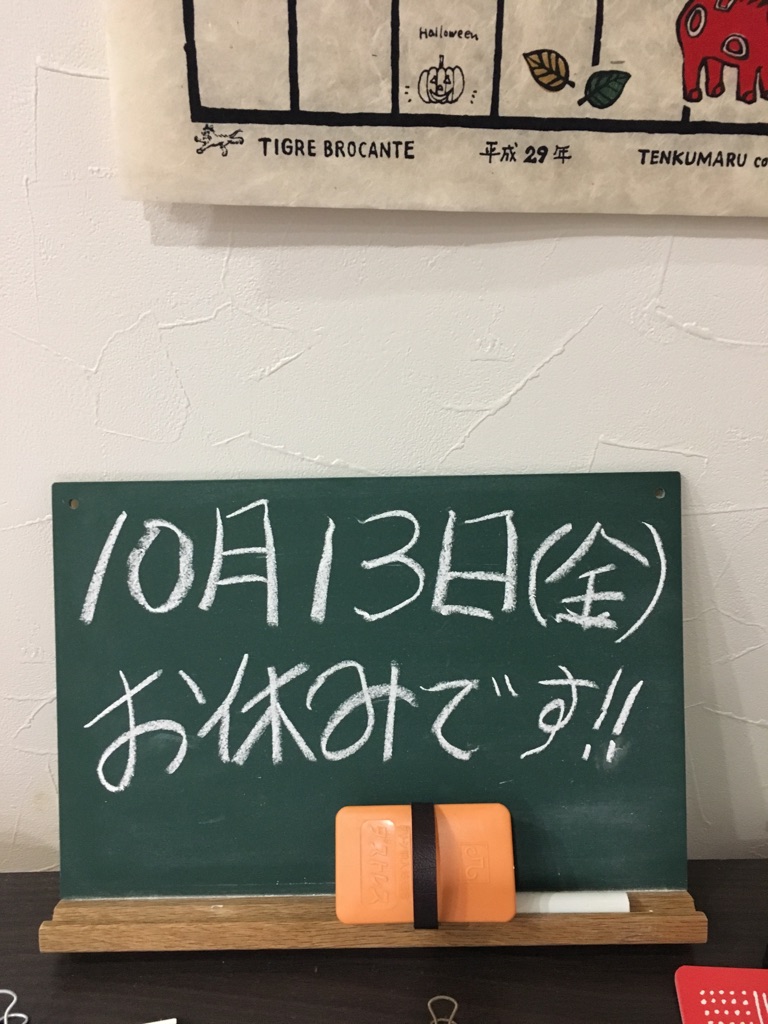 Halloween
TIGRE BROCANTE 平成29年 TENKUMARU co
10月13日(金)
お休みです!!